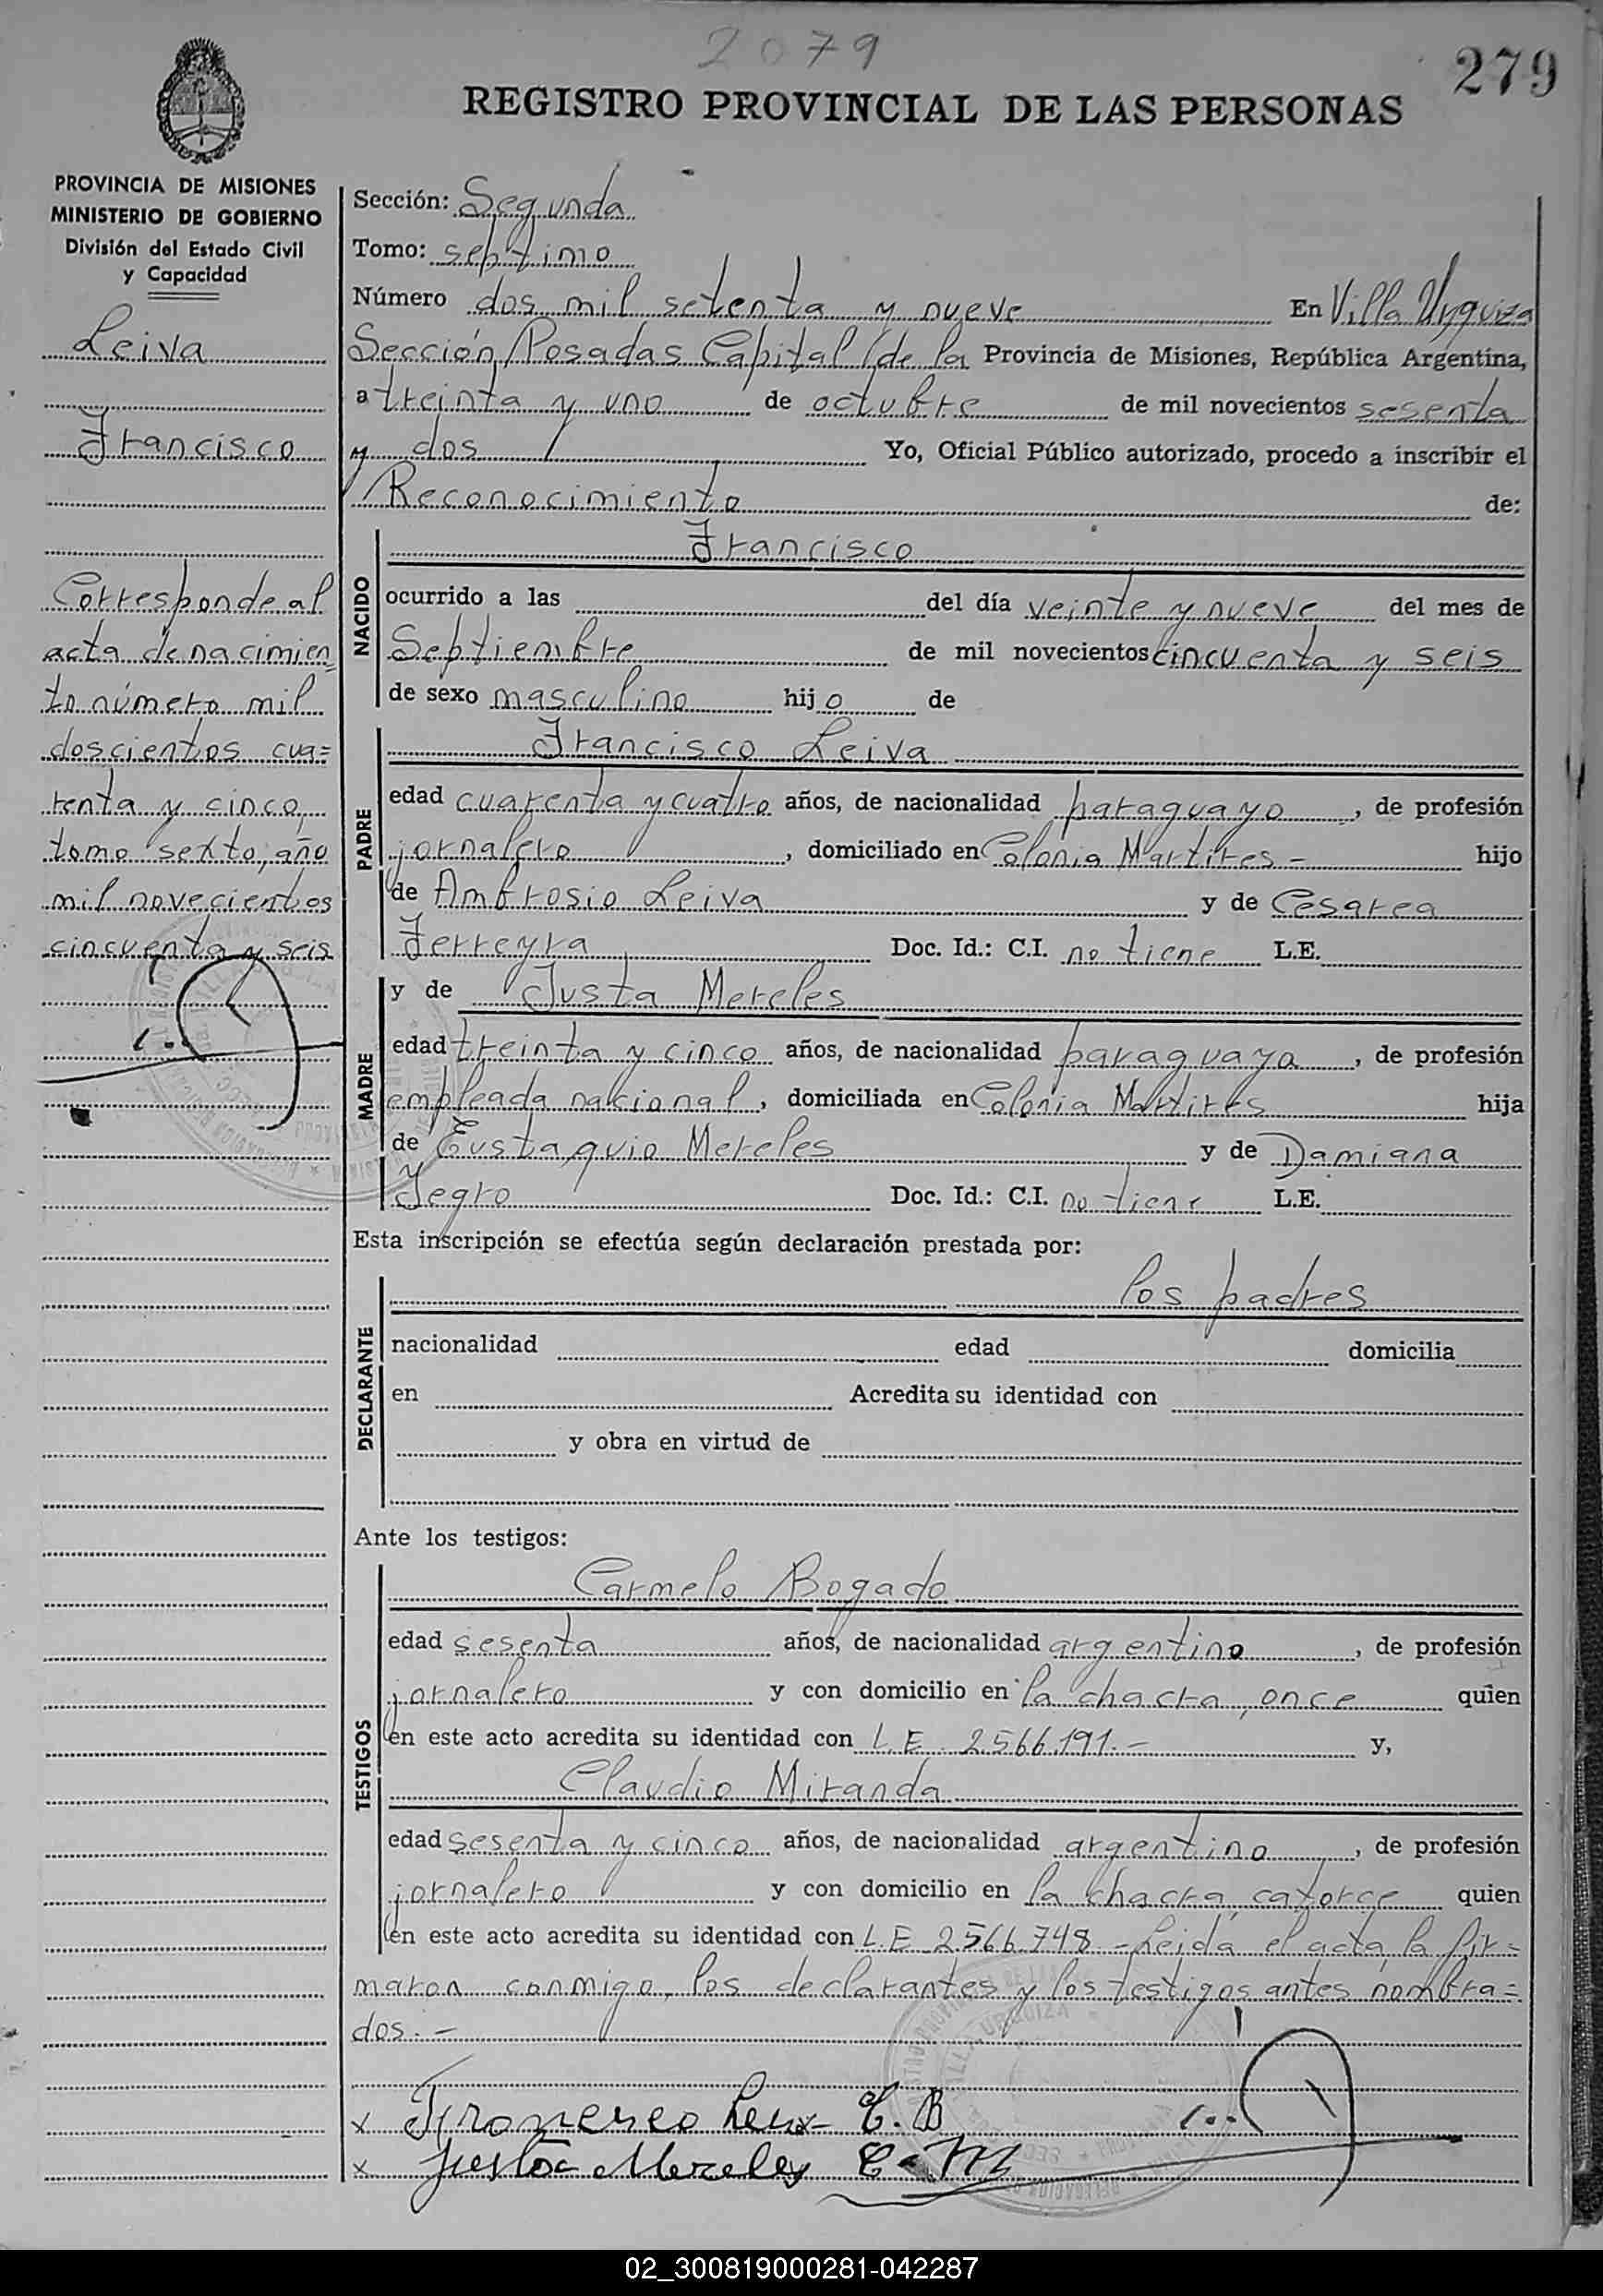 2079
279
REGISTRO PROVINCIAL DE LAS PERSONAS
PROVINCIA DE MISIONES
MINISTERIO DE GOBIERNO
División del Estado Civil
y Capacidad
Leiva
Francisco
Corresponde al
acta de nacimien=
to número mil
doscientos cua=
renta y cinco,
tomo sexto, año
mil novecientos
cincuenta y seis
Sección: Segunda
Tomo: septimo
Número dos mil setenta y nueve En Villa Urquiza
Sección Posadas Capital de la Provincia de Misiones, República Argentina,
a treinta y uno de octubre de mil novecientos sesenta
y dos Yo, Oficial Público autorizado, procedo a inscribir el
Reconocimiento de:
NACIDO
Francisco
ocurrido a las del día veinte y nueve del mes de
Septiembre de mil novecientos cincuenta y seis
de sexo masculino hijo de
PADRE
Francisco Leiva
edad cuarenta y cuatro años, de nacionalidad paraguayo, de profesión
jornalero, domiciliado en Colonia Martires - hijo
de Ambrosio Leiva y de Cesarea
Ferreyra Doc. Id.: C.I. no tiene L.E.
MADRE
y de Justa Mereles
edad treinta y cinco años, de nacionalidad paraguaya, de profesión
empleada nacional, domiciliada en Colonia Martires hija
de Eustaquio Mereles y de Damiana
Yegro Doc. Id.: C.I. no tiene L.E.
Esta inscripción se efectúa según declaración prestada por:
DECLARANTE
los padres
nacionalidad edad domicilia
en Acredita su identidad con
y obra en virtud de
Ante los testigos:
TESTIGOS
Carmelo Bogado
edad sesenta años, de nacionalidad argentino, de profesión
jornalero y con domicilio en la chacra once quien
en este acto acredita su identidad con L.E. 2.566.191.- y,
Claudio Miranda
edad sesenta y cinco años, de nacionalidad argentino, de profesión
jornalero y con domicilio en la chacra catorce quien
en este acto acredita su identidad con L.E 2.566.748 - Leída el acta la fir=
maron conmigo, los declarantes y los testigos antes nombra=
dos.-
x C. B
x Justa Mereles C. M
02_300819000281-042287